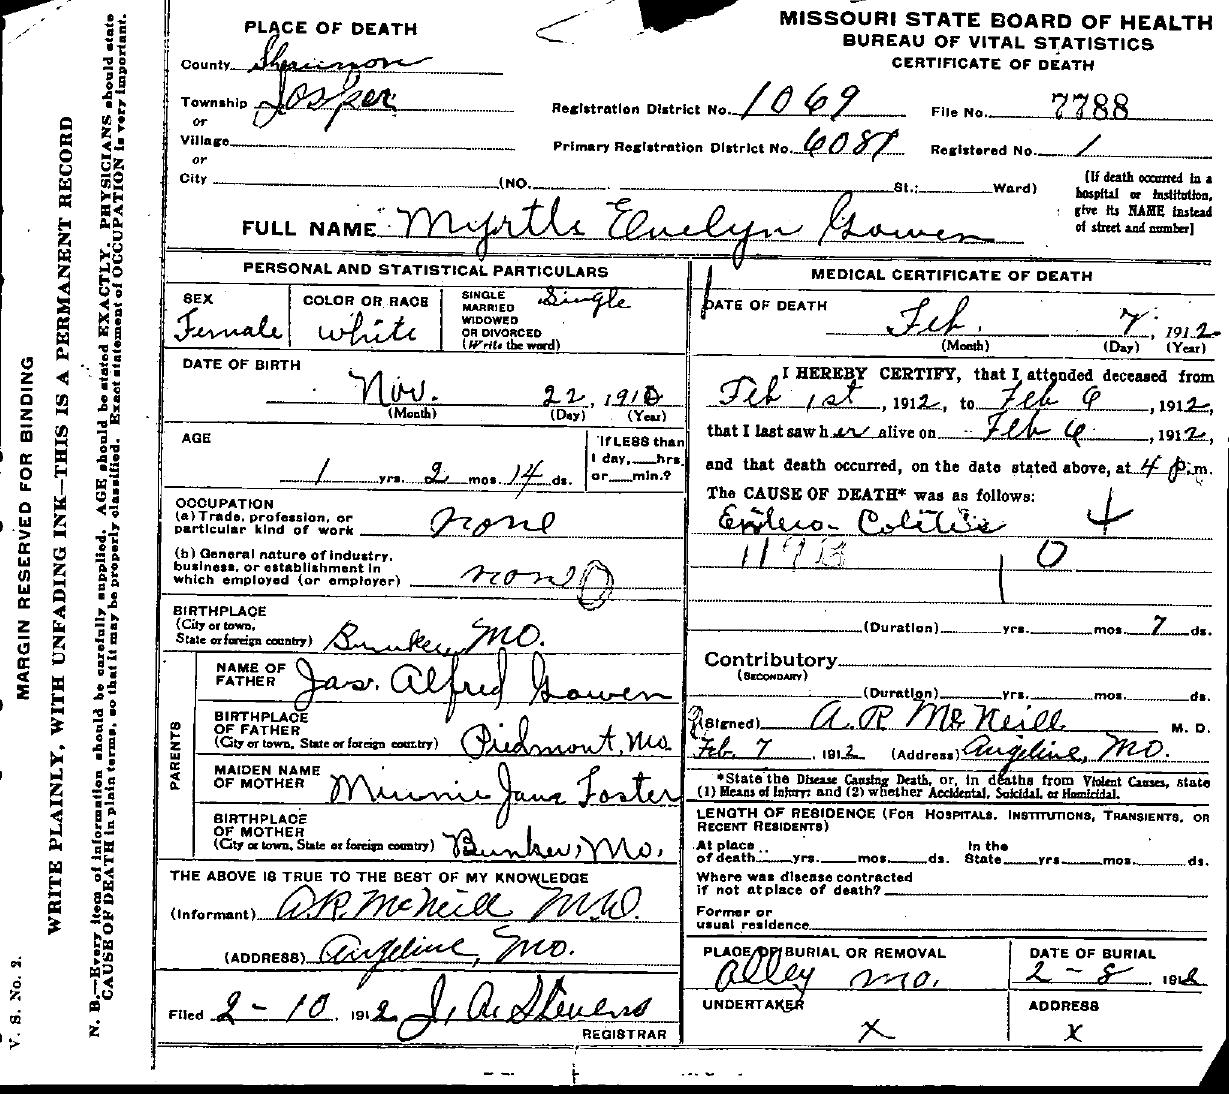 MISSOURI STATE BOARD OF HEALTH
BUREAU OF VITAL STATISTICS
CERTIFICATE OF DEATH
PLACE OF DEATH
County Shannon
Township Jasper
or
Village
or
City (NO. St.; Ward)
Registration District No. 1069 File No. 7788
Primary Registration District No. 6081 Registered No. 1
(If death occurred in a hospital or institution, give its NAME instead of street and number]
FULL NAME Myrtle Evelyn Gowen
PERSONAL AND STATISTICAL PARTICULARS
SEX
Female
COLOR OR RACE
White
SINGLE
MARRIED
WIDOWED
OR DIVORCED
(Write the word)
Single
DATE OF BIRTH
Nov. 22, 1910
(Month) (Day) (Year)
AGE
1 yrs. 2 mos. 14 ds.
If LESS than
1 day, hrs.
or min.?
OCCUPATION
(a) Trade, profession, or
particular kind of work none
(b) General nature of industry,
business, or establishment in
which employed (or employer) none
BIRTHPLACE
(City or town,
State or foreign country) Bunker, MO.
PARENTS
NAME OF
FATHER Jas. Alfred Gowen
BIRTHPLACE
OF FATHER
(City or town, State or foreign country) Piedmont, Mo.
MAIDEN NAME
OF MOTHER Minnie Jane Foster
BIRTHPLACE
OF MOTHER
(City or town, State or foreign country) Bunker, Mo.
THE ABOVE IS TRUE TO THE BEST OF MY KNOWLEDGE
(Informant) A.R. McNeill M.D.
(ADDRESS) Angeline, Mo.
Filed 2-10 1912 J. A. Stevens
REGISTRAR
MEDICAL CERTIFICATE OF DEATH
DATE OF DEATH
Feb. 7, 1912
(Month) (Day) (Year)
I HEREBY CERTIFY, that I attended deceased from
Feb 1st, 1912, to Feb 6, 1912,
that I last saw her alive on Feb 6, 1912,
and that death occurred, on the date stated above, at 4 p.m.
The CAUSE OF DEATH* was as follows:
Entero-Colitis
(Duration) yrs. mos. 7 ds.
Contributory
(SECONDARY)
(Duration) yrs. mos. ds.
(Signed) A.R. McNeill M. D.
Feb. 7 1912 (Address) Angeline, Mo.
*State the Disease Causing Death, or, in deaths from Violent Causes, state
(1) Means of Injury; and (2) whether Accidental, Suicidal, or Homicidal.
LENGTH OF RESIDENCE (FOR HOSPITALS, INSTITUTIONS, TRANSIENTS, OR
RECENT RESIDENTS)
At place
of death yrs. mos. ds. In the State yrs. mos. ds.
Where was disease contracted
if not at place of death?
Former or
usual residence
PLACE OF BURIAL OR REMOVAL
Alley Mo.
DATE OF BURIAL
2-8 1912
UNDERTAKER
X
ADDRESS
X
MARGIN RESERVED FOR BINDING
WRITE PLAINLY, WITH UNFADING INK—THIS IS A PERMANENT RECORD
N. B.—Every item of information should be carefully supplied. AGE should be stated EXACTLY. PHYSICIANS should state
CAUSE OF DEATH in plain terms, so that it may be properly classified. Exact statement of OCCUPATION is very important.
V. S. No. 2.